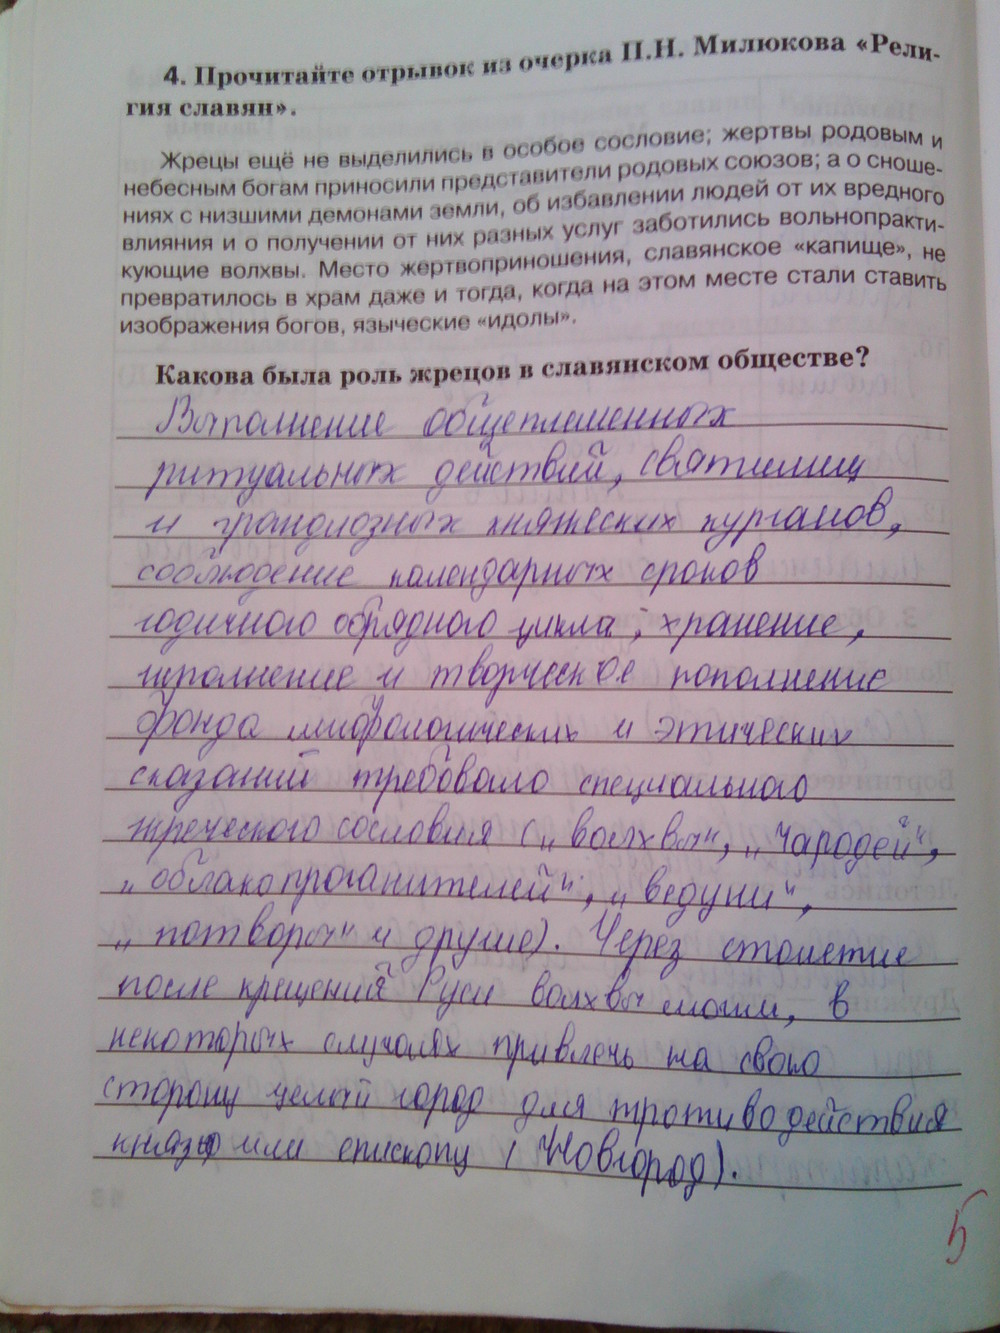 4. Прочитайте отрывок из очерка П.Н. Милюкова «Рели-
гия славян».
Жрецы ещё не выделились в особое сословие; жертвы родовым и
небесным богам приносили представители родовых союзов; а о сноше-
ниях с низшими демонами земли, об избавлении людей от их вредного
влияния и о получении от них разных услуг заботились вольнопракти-
кующие волхвы. Место жертвоприношения, славянское «капище», не
превратилось в храм даже и тогда, когда на этом месте стали ставить
изображения богов, языческие «идолы».
Какова была роль жрецов в славянском обществе?
Выполнение общеплеменных
ритуальных действий, святилищ
и грандиозных княжеских курганов,
соблюдение календарных сроков
годичного обрядного цикла, хранение,
исполнение и творческое пополнение
фонда мифологических и этических
сказаний требовало специального
жреческого сословия („волхвы“, „чародей“,
„облакопроганителей“, „ведуни“,
„потворы“ и другие). Через столетие
после крещений Руси волхвы могли, в
некоторых случаях привлечь на свою
сторону целый город для противодействия
князю или епископу (Новгород).
5